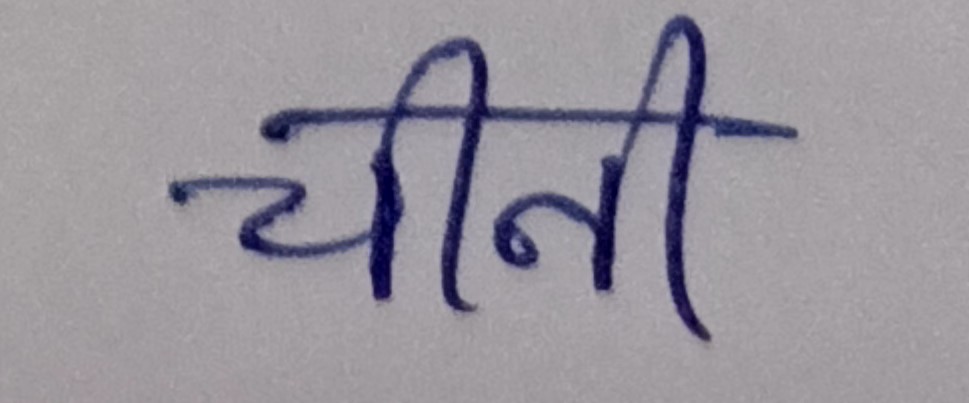 चीनी